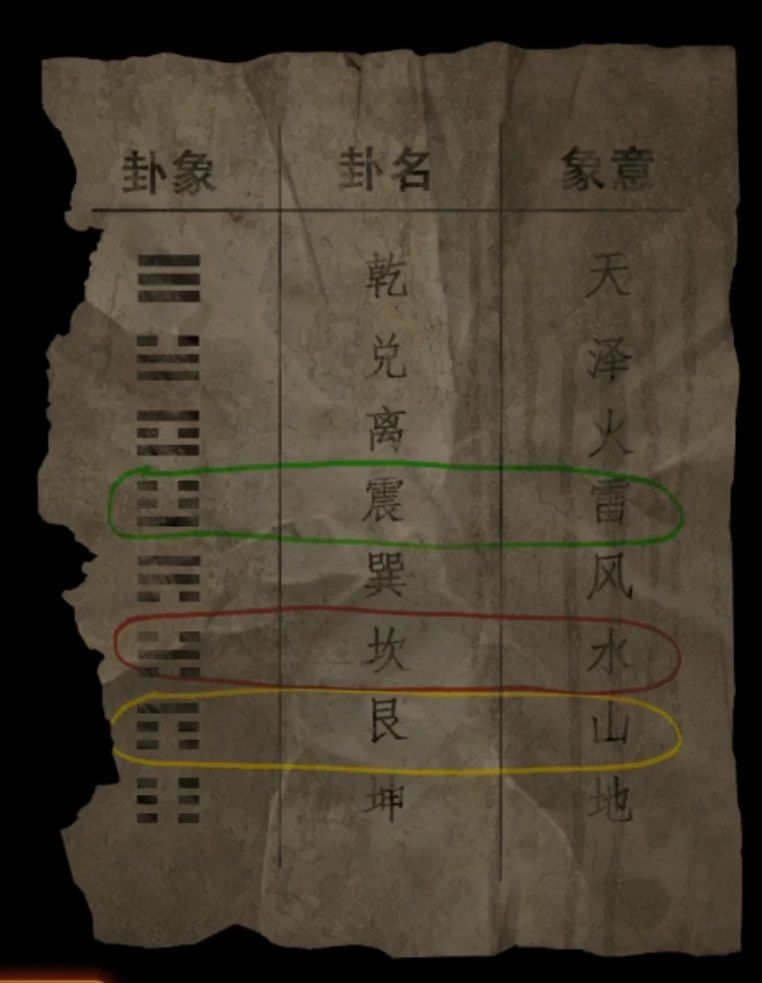 卦象 卦名 象意
☰ 乾 天
☱ 兑 泽
☲ 离 火
☳ 震 雷
☴ 巽 风
☵ 坎 水
☶ 艮 山
☷ 坤 地